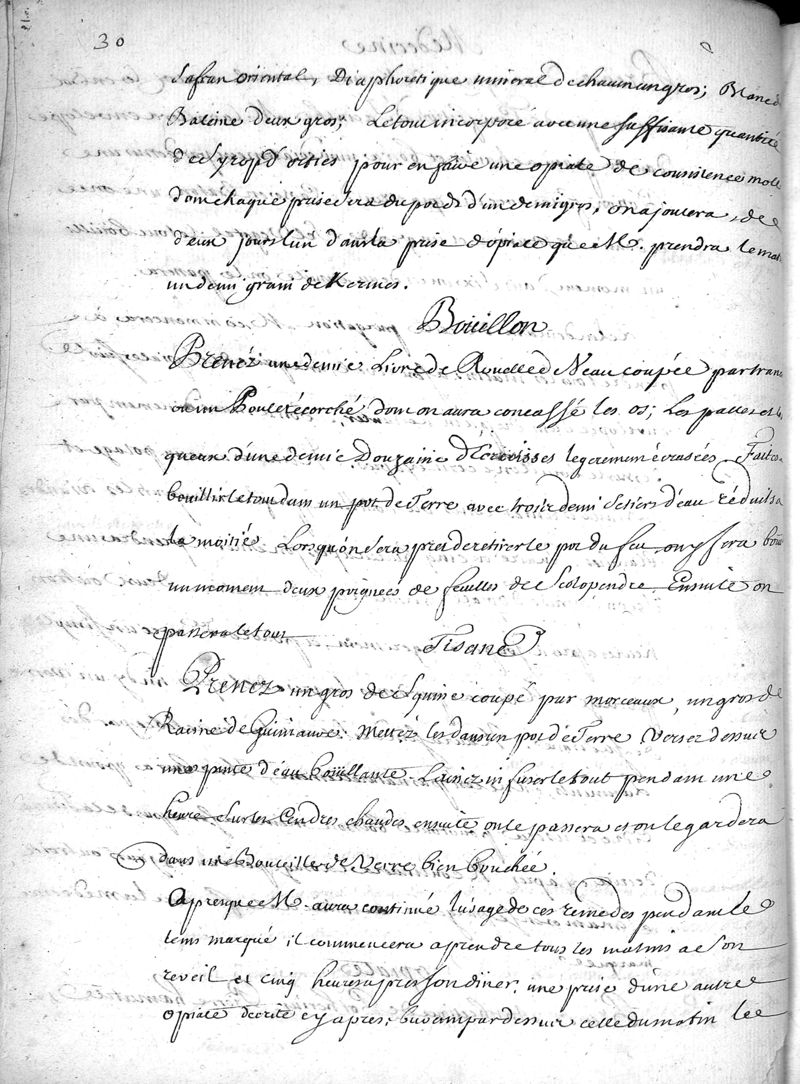 30
Safran oriental, Diaphoretique mineral de chacun un gros; Blanc de
Baleine deux gros, Le tout incorporé avec une suffisante quantité
de Syrop d'orties pour en faire une opiate de consistence molle
dont chaque prise sera du poids d'un demi gros, on ajoutera, de
deux jours l'un dans la prise d'opiate que M. prendra le mat
un demi grain de Kermes.
Bouillon
Prenez une demie Livre de Rouelle de Veau coupée par tran
ou un Poulet écorché, dont on aura concassé les os; Les pattes et la
queux d'une demie Douzaine d'Ecrevisses legerement écrasées. Faites
bouillir le tout dans un pot de Terre avec trois demi Setiers d'eau réduits a
La moitié. Lorsqu'on sera prest de retirer le pot du feu on y fera boüi
un moment deux poignées de feuilles de Scolopendre. Ensuite on
passera le tout
Tisane
Prenez un gros de Squine coupé par morceaux, un gros de
Racine de Guimauve. Mettez les dans un pot de Terre Versez dessus
une pinte d'eau boüillante. Laissez infuser le tout pendant une
heure sur les Cendres chaudes, ensuite on le passera et on le gardera
dans une Bouteille de Verre bien bouchée.
Apres que M. aura continué l'usage de ces remedes pendant le
tems marqué il commencera a prendre tous les matins a son
reveil et cinq heures apres son diner, une prise d'une autre
Opiate decrite cy apres, buvant par dessus celle du matin le